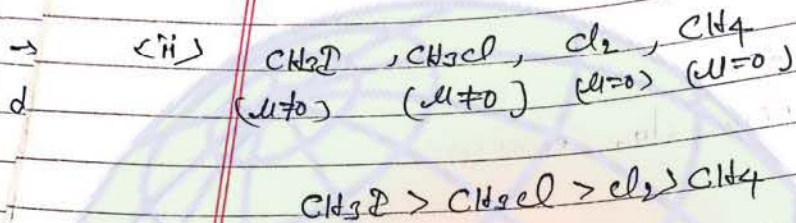 → <ii> CH3I , CH3Cl , Cl2 , CH4
d (μ≠0) (μ≠0) (μ=0) (μ=0)
CH3I > CH3Cl > Cl2 > CH4